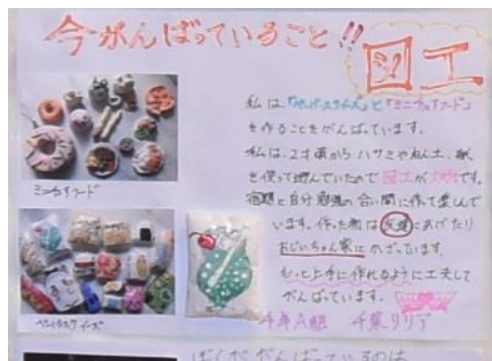 今がんばっていること!!
図工
私は、「ペーパースクイーズ」と「ミニチュアフード」
を作ることをがんばっています。
私は、2才頃からハサミやねん土、紙
を使って遊んでいたので図工が大好です。
宿題と自分勉強の合い間に作て楽しんで
います。作った物は友達にあげたり
おじいちゃん家にかざっています。
もっと上手に作れるように工夫して
がんばっています。
4年A組 千葉リリア
ミニチュアフード
ペーパースクイーズ
ぼくががんばっているのは